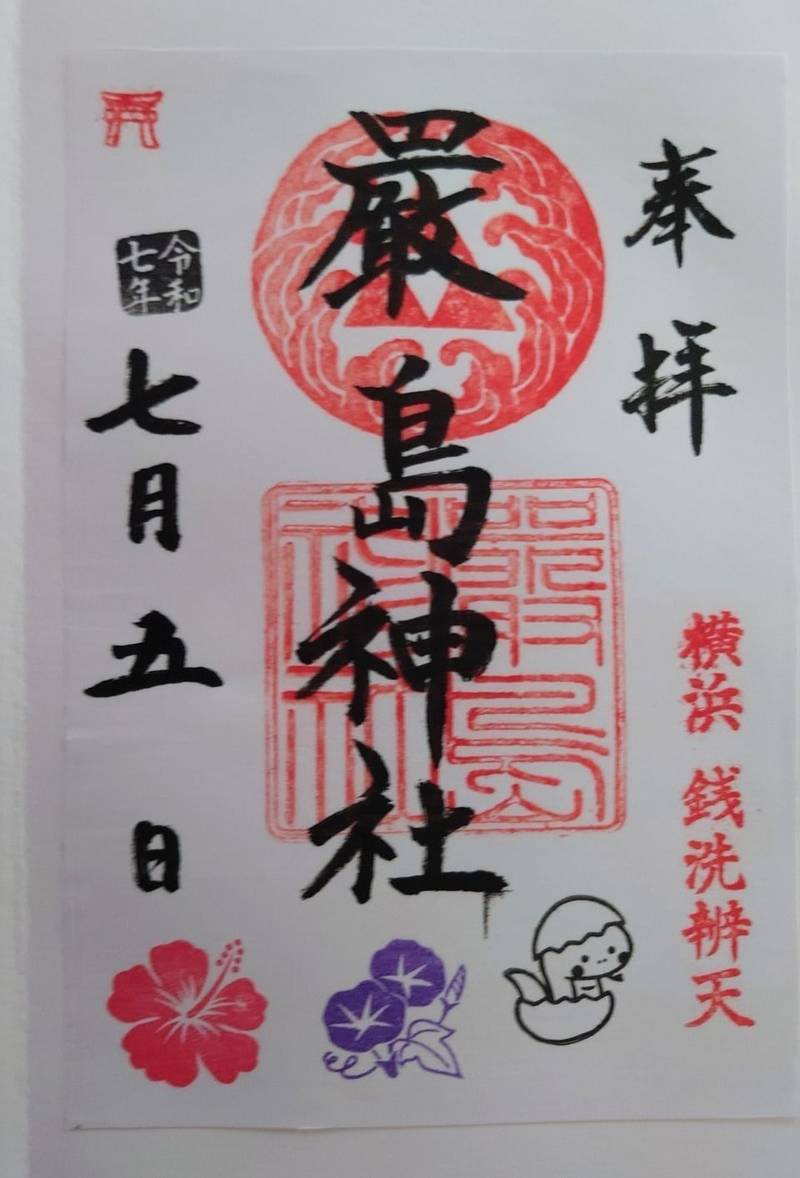 奉拝
横浜 銭洗辨天
嚴島神社
嚴島神社
令和七年
七月五日